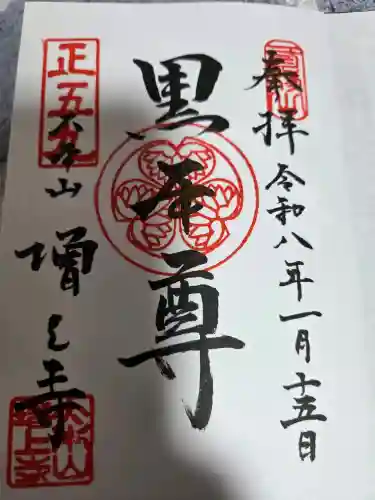 奉拝 令和八年一月十五日
黒本尊
正五九
三縁山
増上寺